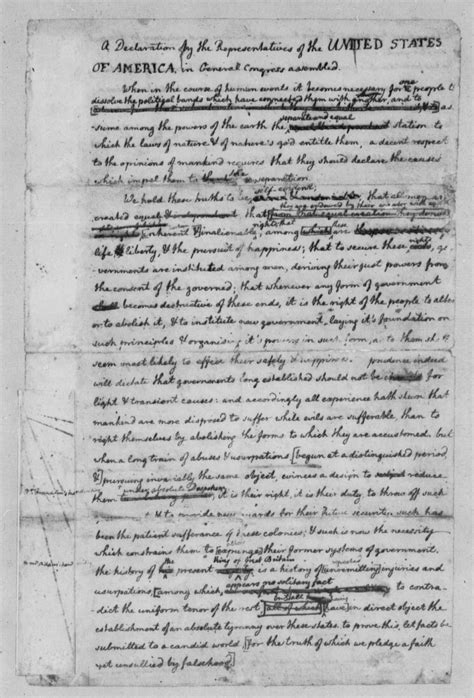 A Declaration by the Representatives of the UNITED STATES
OF AMERICA, in General Congress assembled.
When in the course of human events it becomes necessary for one people to
dissolve the political bands which have connected them with another, and to
as-
separate and equal
sume among the powers of the earth the station to
which the laws of nature & of nature's god entitle them, a decent respect
to the opinions of mankind requires that they should declare the causes
which impel them to the separation.
self-evident,
We hold these truths to be that all men are
they are endowed by their creator with
created equal & independant; that from that equal creation they derive
rights; that these
inherent & inalienable among which are
life, & liberty, & the pursuit of happiness; that to secure these rights, go-
vernments are instituted among men, deriving their just powers from
the consent of the governed; that whenever any form of government
becomes destructive of these ends, it is the right of the people to alter
or to abolish it, & to institute new government, laying it's foundation on
such principles & organising it's powers in such form, as to them shall
seem most likely to effect their safety & happiness. prudence indeed
will dictate that governments long established should not be changed for
light & transient causes: and accordingly all experience hath shewn that
mankind are more disposed to suffer while evils are sufferable, than to
right themselves by abolishing the forms to which they are accustomed. but
when a long train of abuses & usurpations [begun at a distinguished period,
& pursuing invariably the same object, evinces a design to reduce
under absolute Despotism
them it is their right, it is their duty, to throw off such
& to provide new guards for their future security. such has
been the patient sufferance of these colonies; & such is now the necessity
which constrains them to [expunge] their former systems of government.
the King of Great Britain
the history of present is a history of [unremitting] injuries and
appears no solitary fact
usurpations, [among which, to contra-
but all have
dict the uniform tenor of the rest [all of which] have in direct object the
establishment of an absolute tyranny over these states. to prove this, let facts be
submitted to a candid world, [for the truth of which we pledge a faith
yet unsullied by falsehood]